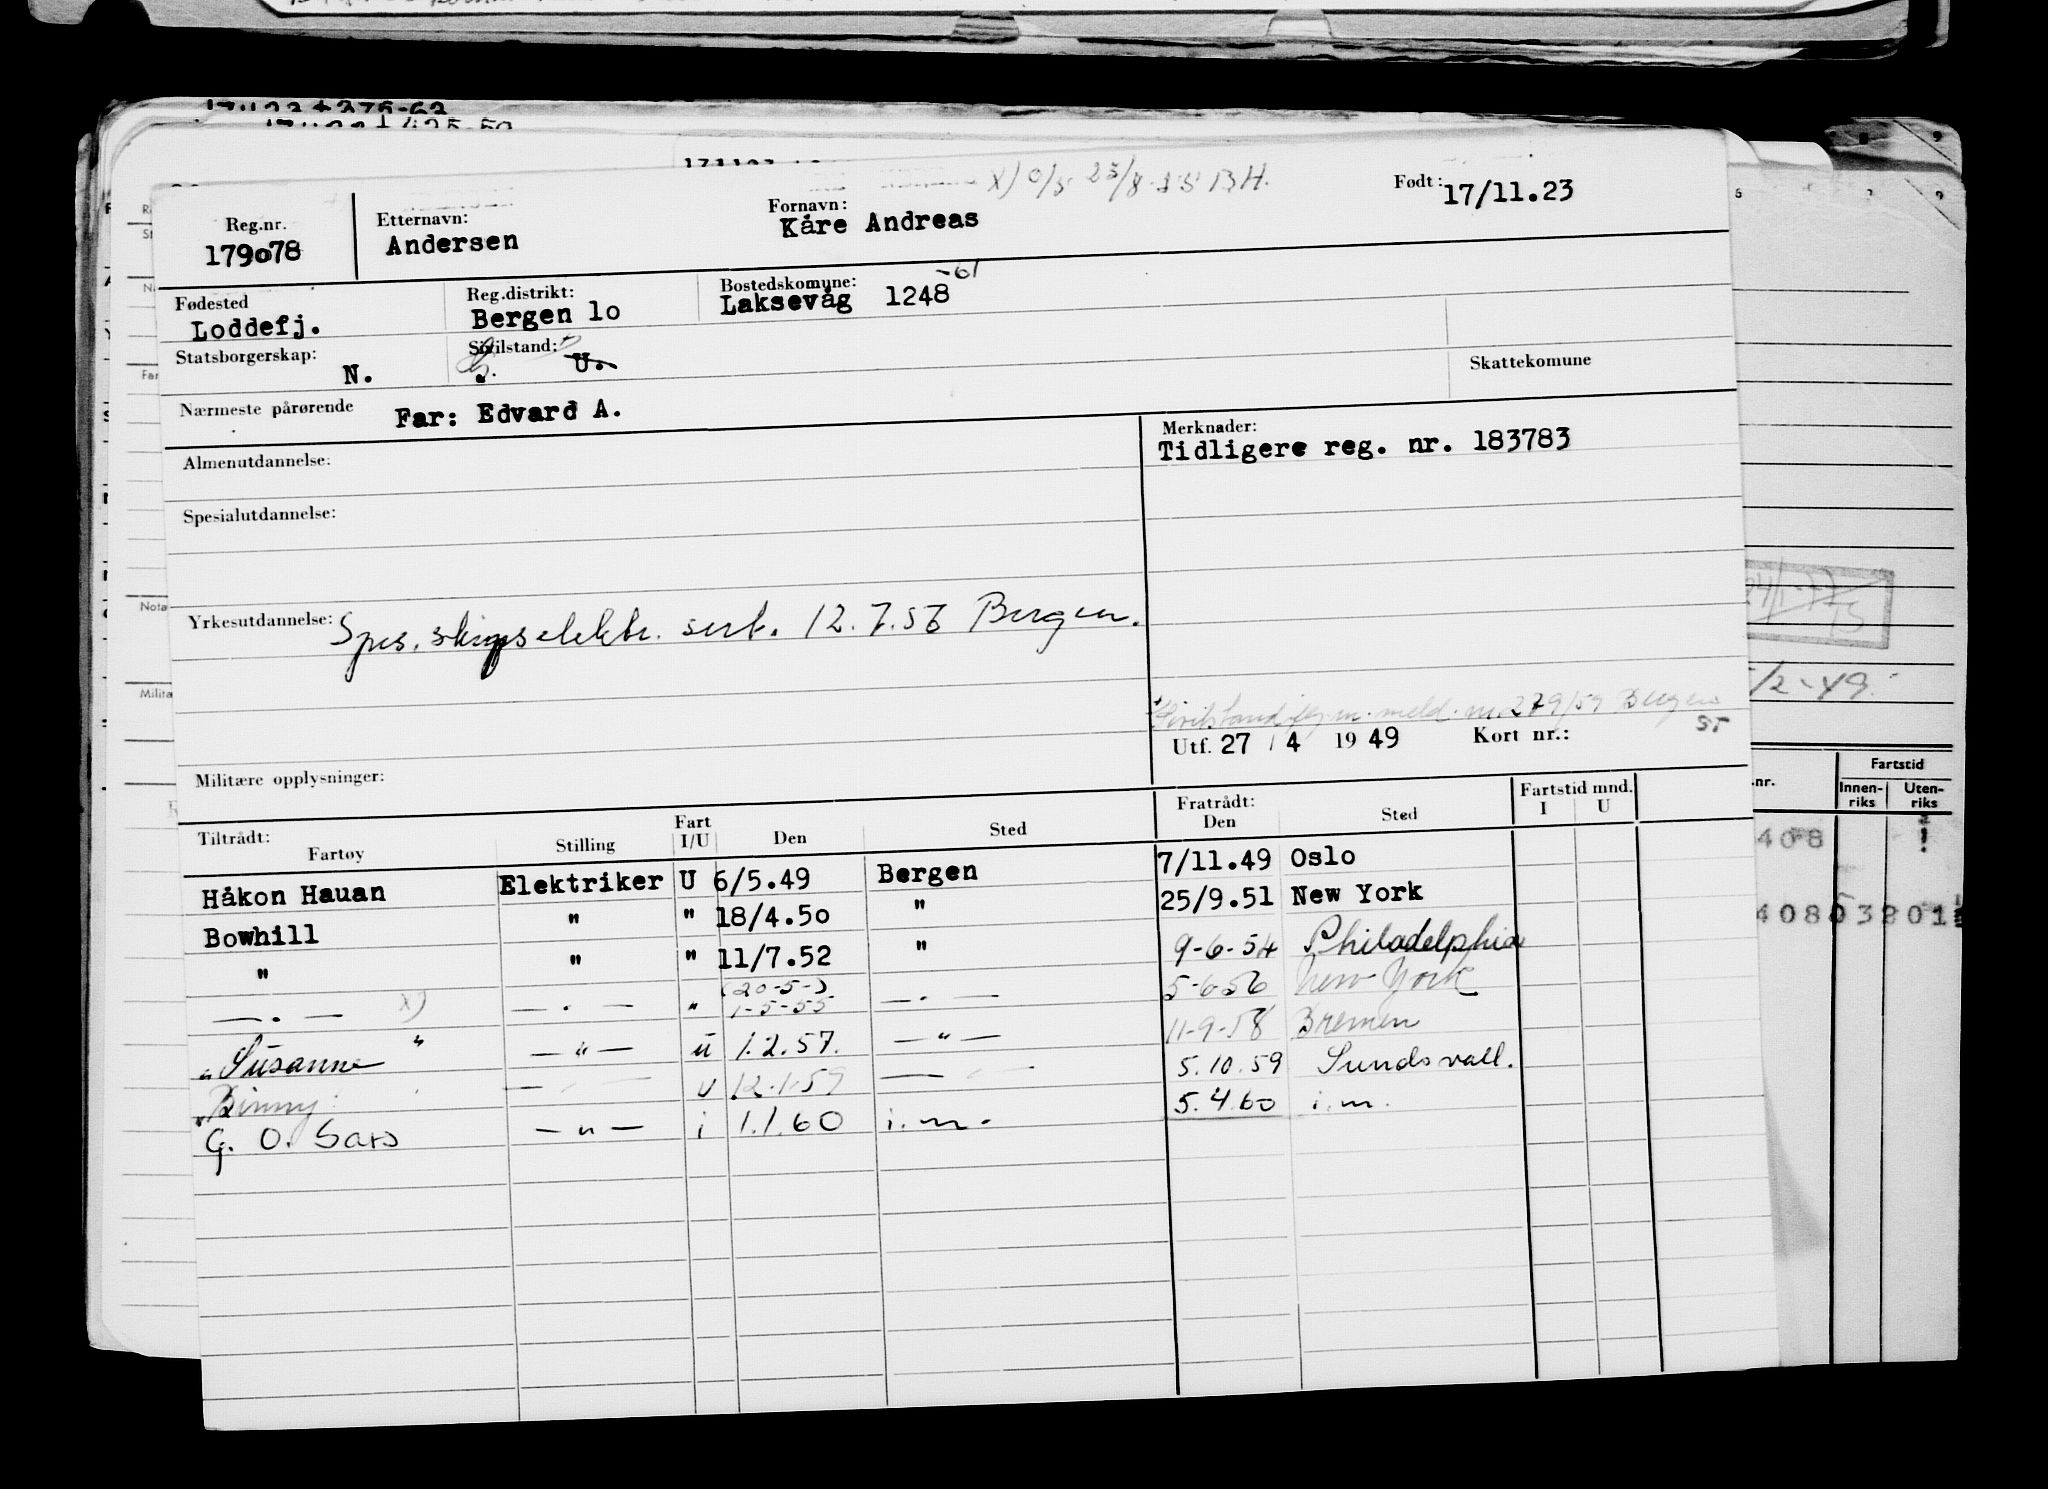 Født: 17/11.23
Reg.nr. Etternavn: Fornavn:
179o78 Andersen Kåre Andreas
Fødested Reg.distrikt: Bostedskomune: -61
Loddefj. Bergen 1o Laksevåg 1248
Statsborgerskap: Sivilstand: Skattekomune
N. U.
Nærmeste pårørende Far: Edvard A.
Almenutdannelse: Merknader:
Tidligere reg. nr. 183783
Spesialutdannelse:
Yrkesutdannelse: Spes. skipselektr. sert. 12.7.56 Bergen.
279/59 Bergen
Utf. 27 / 4 1949 Kort nr.:
Militære opplysninger:
Tiltrådt: Fart Fratrådt: Fartstid mnd.
Fartøy Stilling I/U Den Sted Den Sted I U
Håkon Hauan Elektriker U 6/5.49 Bergen 7/11.49 Oslo
Bowhill " " 18/4.5o " 25/9.51 New York
" " " 11/7.52 " 9-6-54 Philadelphia
(20-5-)
— . — x) — . — " 1-5-55 — . — 5-6-56 New York
"Susanne" — " — u 1.2.57. — " — 11-9-58 Bremen
"Binny" — — u 12-1-59 — — 5.10.59 Sundsvall.
G. O. Sars — " — i 1.1.60 i.m. 5.4.60 i.m.
/2-49
.nr. Fartstid
Innen-riks Uten-riks
408
408 03201